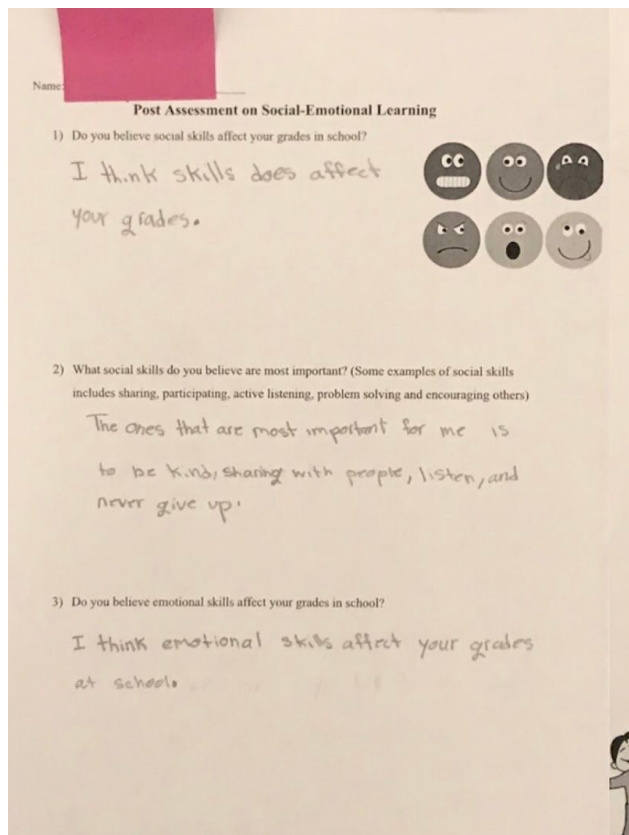 Name:
Post Assessment on Social-Emotional Learning
1) Do you believe social skills affect your grades in school?
I think skills does affect
your grades.
2) What social skills do you believe are most important? (Some examples of social skills
includes sharing, participating, active listening, problem solving and encouraging others)
The ones that are most important for me is
to be kind, sharing with people, listen, and
never give up.
3) Do you believe emotional skills affect your grades in school?
I think emotional skills affect your grades
at school.